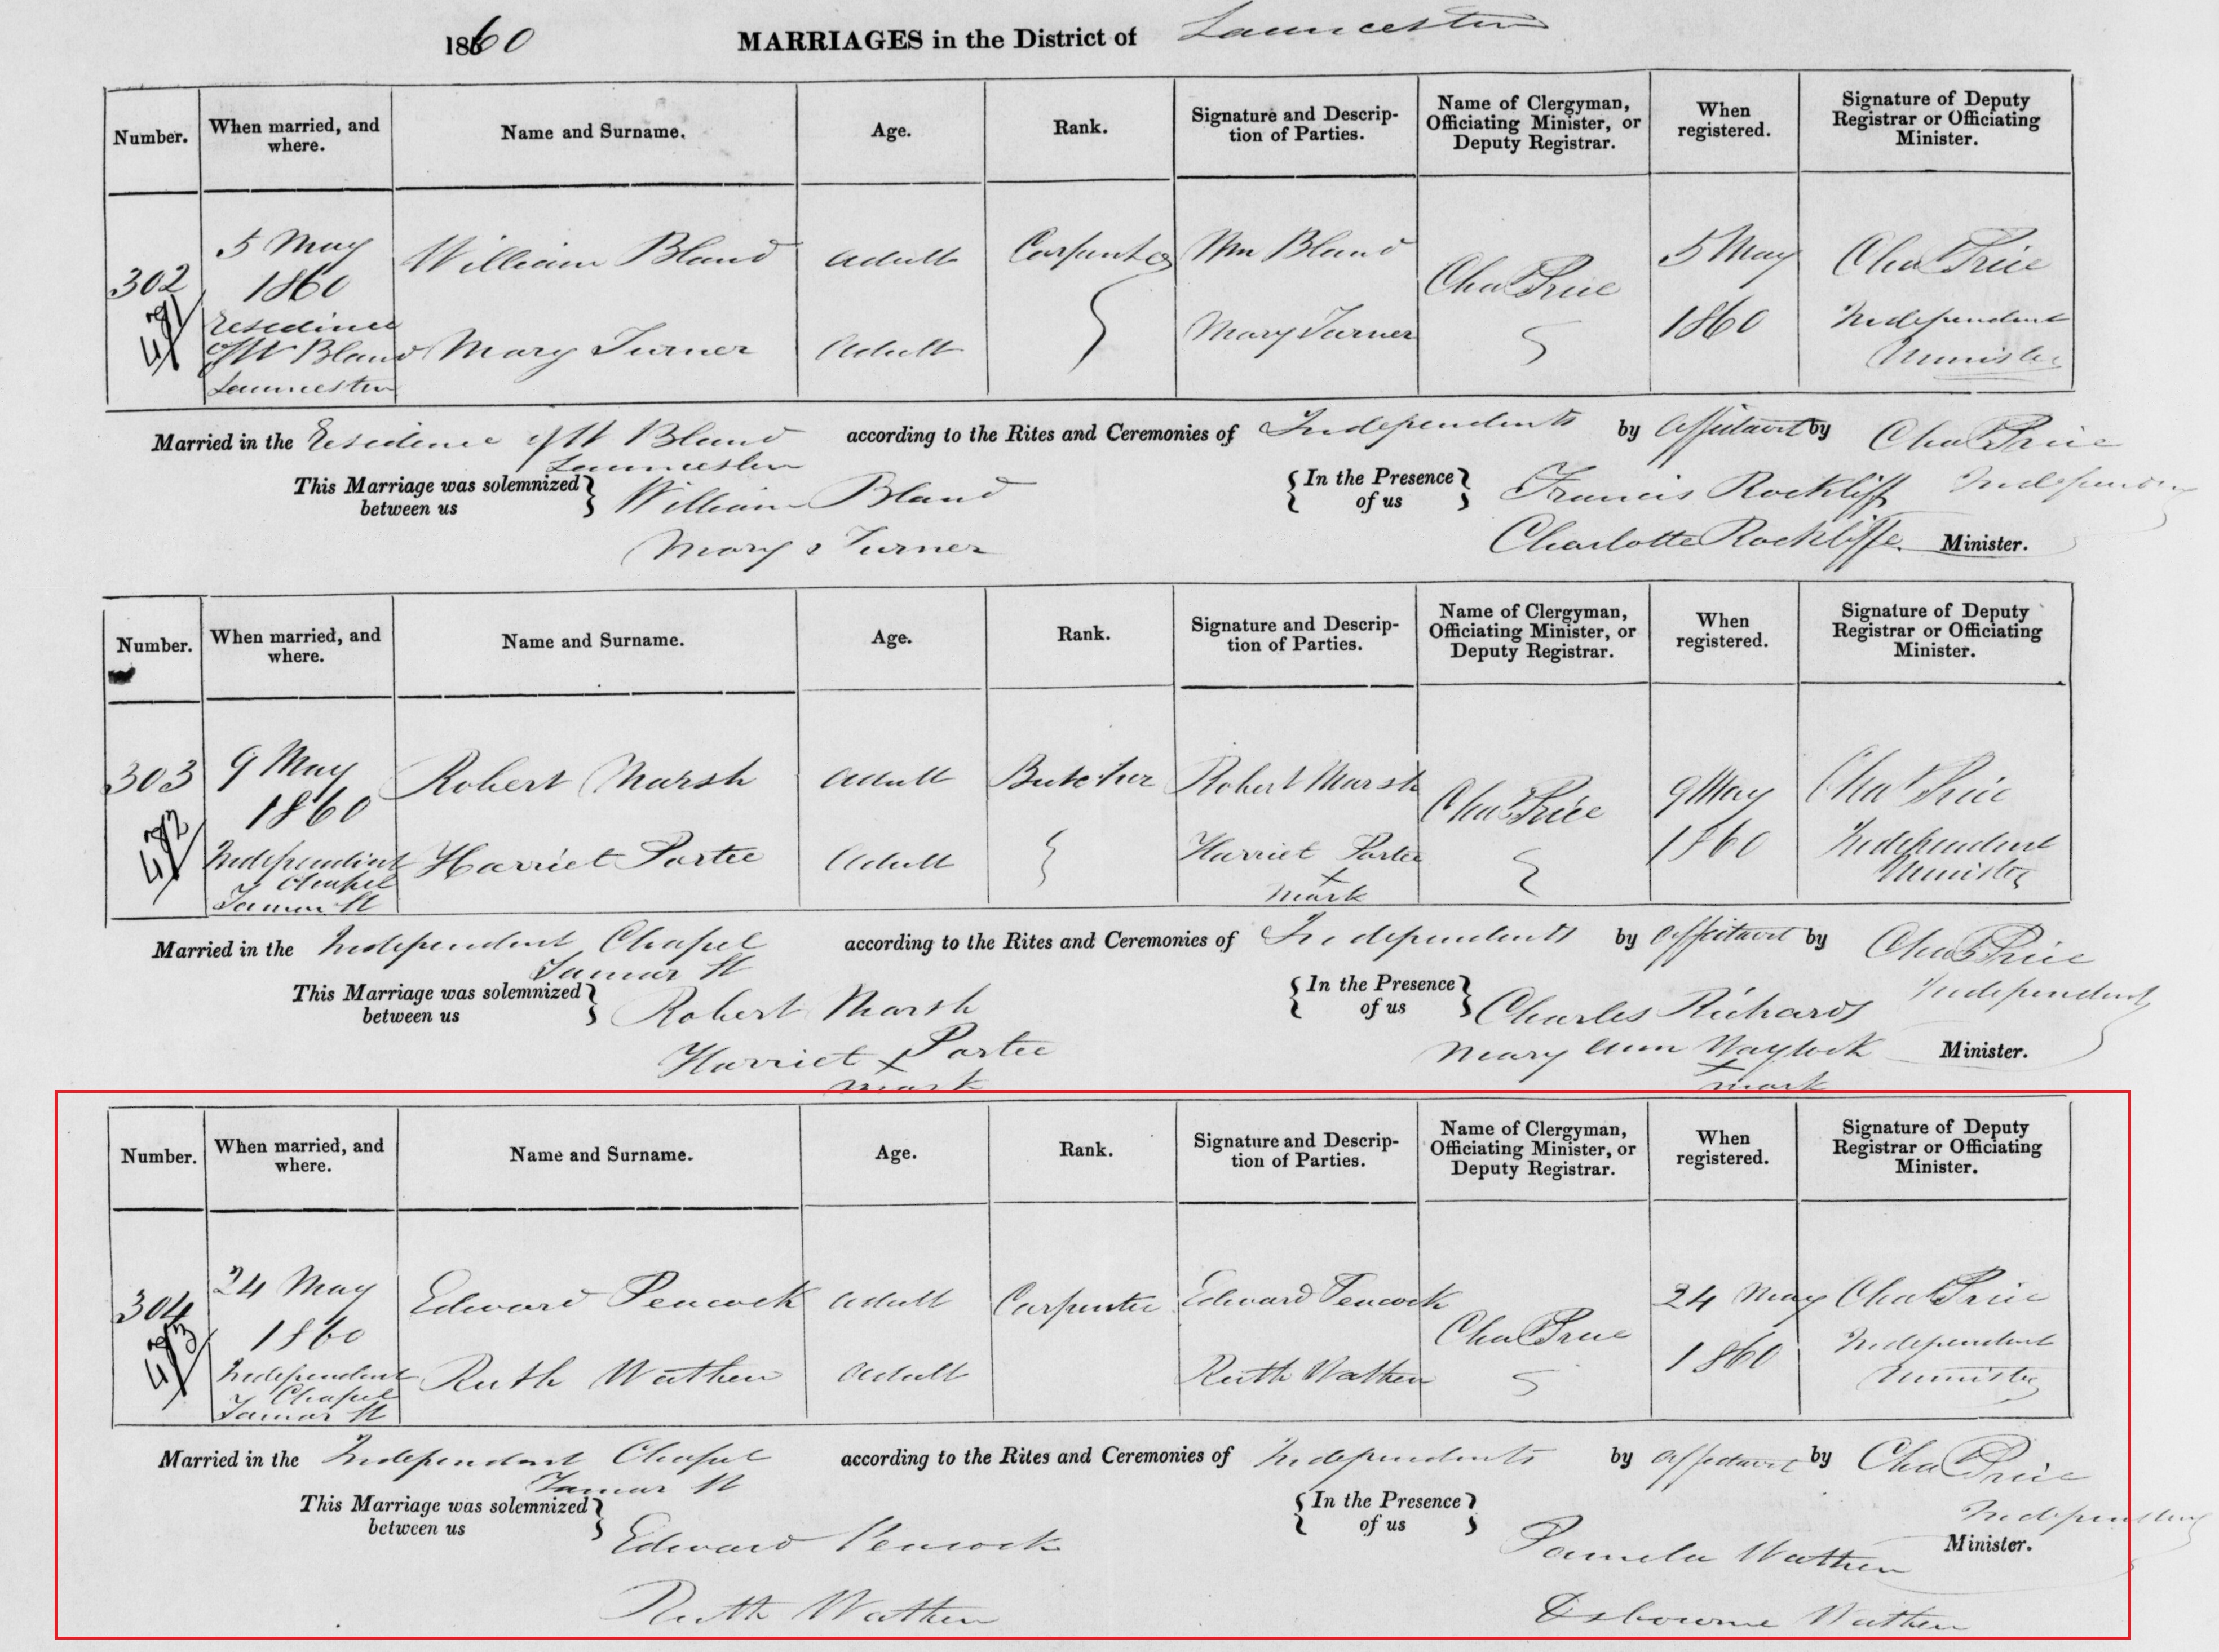 1860 MARRIAGES in the District of Launceston
Number. When married, and where. Name and Surname. Age. Rank. Signature and Description of Parties. Name of Clergyman, Officiating Minister, or Deputy Registrar. When registered. Signature of Deputy Registrar or Officiating Minister.
302 5 May William Bland Adult Carpenter Wm Bland Chas Price 5 May Chas Price
1860
491 Residence of W Bland Launceston Mary Turner Adult Mary Turner 1860 Independent Minister
Married in the Residence of W Bland according to the Rites and Ceremonies of Independents by Affidavit by Chas Price
Launceston
This Marriage was solemnized between us William Bland In the Presence of us Francis Rockliff Independent
Mary Turner Charlotte Rockliffe Minister.
Number. When married, and where. Name and Surname. Age. Rank. Signature and Description of Parties. Name of Clergyman, Officiating Minister, or Deputy Registrar. When registered. Signature of Deputy Registrar or Officiating Minister.
303 9 May Robert Marsh Adult Butcher Robert Marsh Chas Price 9 May Chas Price
1860
492 Independent Chapel Tamar St Harriet Portee Adult Harriet Portee 1860 Independent Minister
x
mark
Married in the Independent Chapel according to the Rites and Ceremonies of Independents by Affidavit by Chas Price
Tamar St
This Marriage was solemnized between us Robert Marsh In the Presence of us Charles Richards Independent
Harriet x Portee Mary Ann Waylock Minister.
mark x mark
Number. When married, and where. Name and Surname. Age. Rank. Signature and Description of Parties. Name of Clergyman, Officiating Minister, or Deputy Registrar. When registered. Signature of Deputy Registrar or Officiating Minister.
304 24 May Edward Peacock Adult Carpenter Edward Peacock Chas Price 24 May Chas Price
1860
493 Independent Chapel Tamar St Ruth Wathen Adult Ruth Wathen 1860 Independent Minister
Married in the Independent Chapel according to the Rites and Ceremonies of Independents by Affidavit by Chas Price
Tamar St
This Marriage was solemnized between us Edward Peacock In the Presence of us Pamela Wathen Independent
Minister.
Ruth Wathen Osbourne Wathen